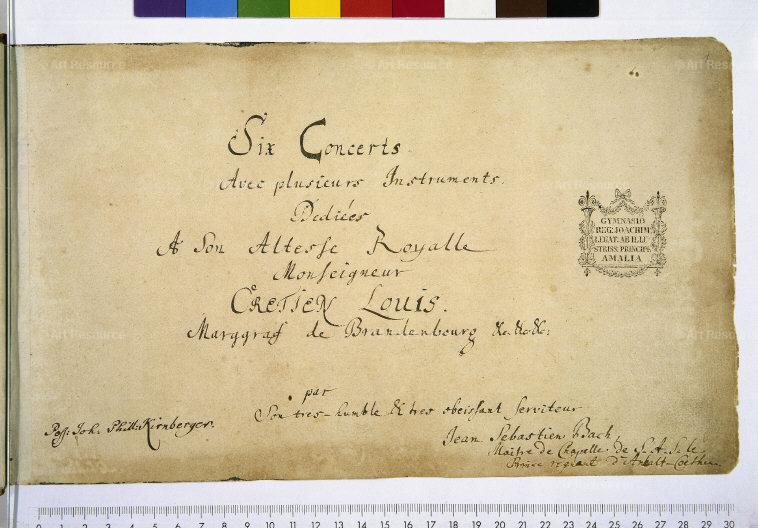 © Art Resource
© Art Resource
© Art Resource
Six Concerts
Avec plusieurs Instruments.
Dediées
A Son Altesse Royalle
Monseigneur
CRETIEN LOUIS.
Marggraf de Brandenbourg &c. &c. &c:
par
Son tres-humble & tres obeissant serviteur
Jean Sebastien Bach,
Maitre de Chapelle de S. A. S. le
Prince regnant d'Anhalt-Coethen.
Poss: Joh. Phill: Kirnberger.
GYMNASIO
REG. JOACHIM.
LEGAT. AB ILLU
STRISS. PRINCIPE
AMALIA
0 1 2 3 4 5 6 7 8 9 10 11 12 13 14 15 16 17 18 19 20 21 22 23 24 25 26 27 28 29 30